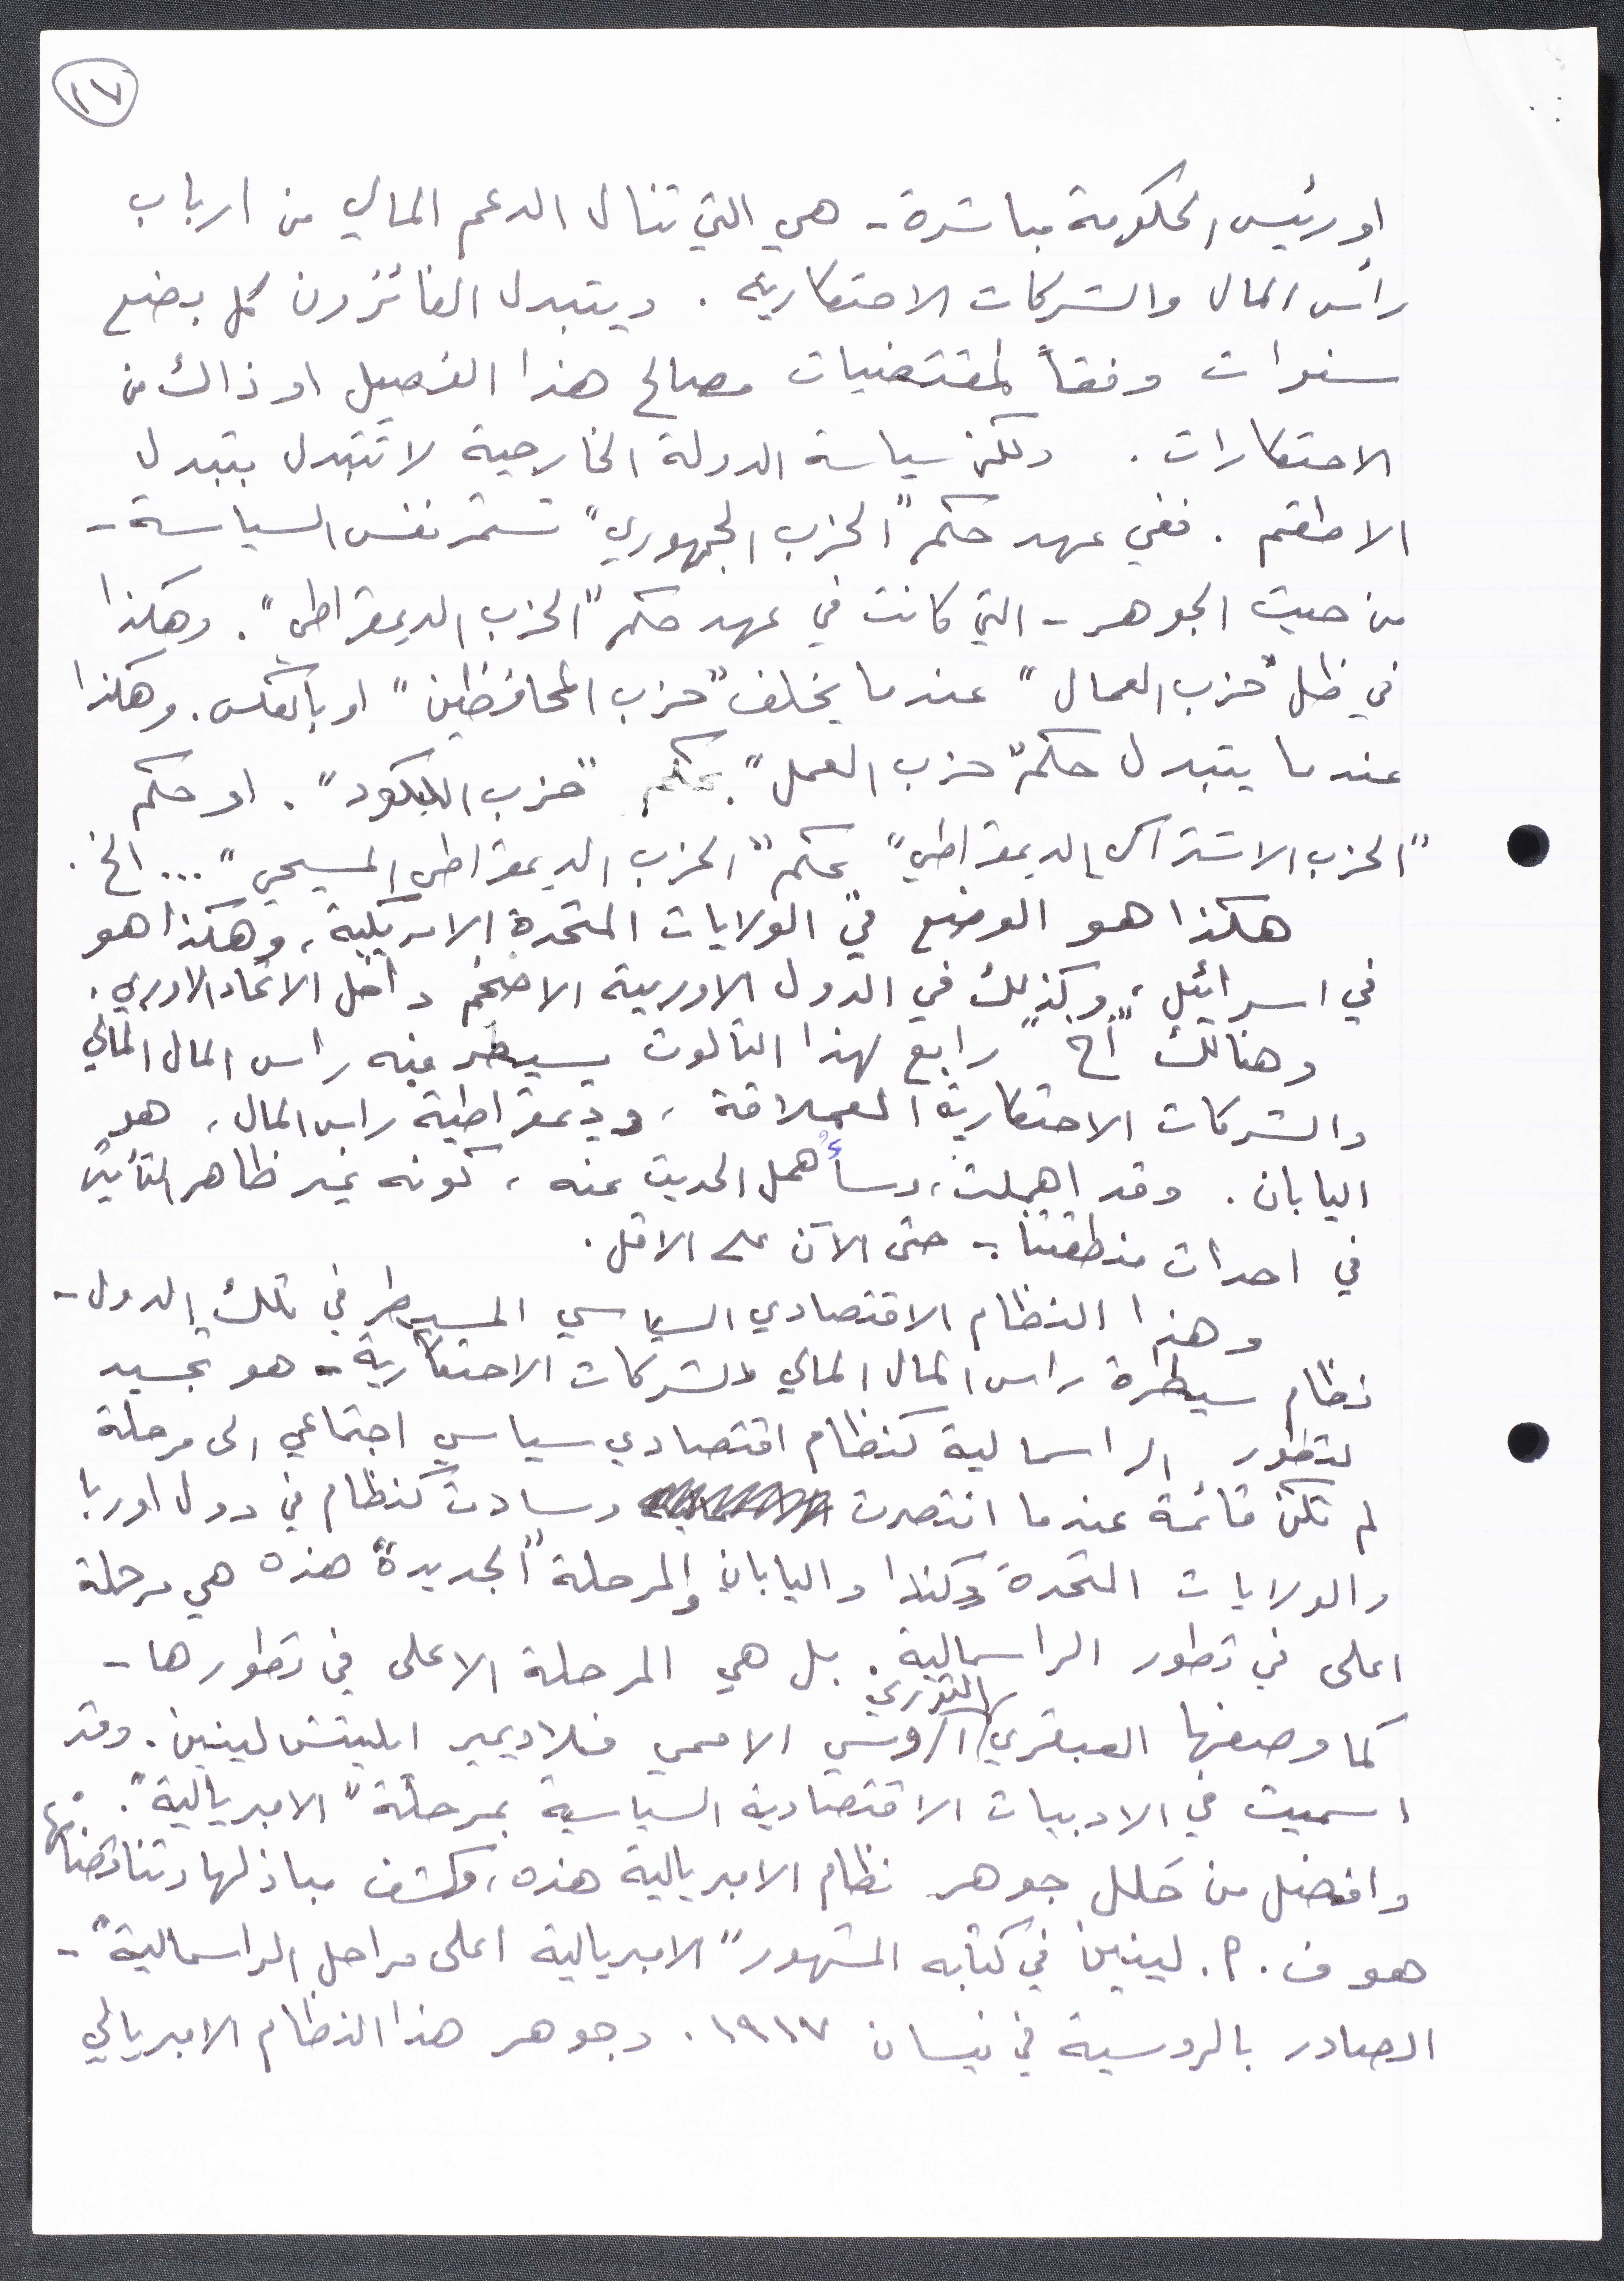 ١٧
او رئيس الحكومة مباشرة - هي التي تنال الدعم المالي من ارباب
رأس المال والشركات الاحتكارية . ويتبدل الفائزون كل بضع
سنوات وفقاً لمقتضيات مصالح هذا الفصيل او ذاك من
الاحتكارات . ولكن سياسة الدولة الخارجية لا تتبدل بتبدل
الاطقم . ففي عهد حكم "الحزب الجمهوري" تستمر نفس السياسة -
من حيث الجوهر - التي كانت في عهد حكم "الحزب الديمقراطي" . وهكذا
في ظل "حزب العمال" عندما يخلف "حزب المحافظين" او بالعكس . وهكذا
عندما يتبدل حكم "حزب العمل" بحكم "حزب الليكود" . او حكم
"الحزب الاشتراكي الديمقراطي" بحكم "الحزب الديمقراطي المسيحي" ... الخ .
هكذا هو الوضع في الولايات المتحدة الامريكية ، وهكذا هو
في اسرائيل ، وكذلك في الدول الاوربية الاضخم داخل الاتحاد الاوربي .
وهنالك "أخ" رابع لهذا الثالوث يسيطر فيه راس المال المالي
والشركات الاحتكارية العملاقة ، وديمقراطية راس المال ، هو
اليابان . وقد اهملت ، وسأُهمل الحديث عنه ، كونه غير ظاهر التأثير
في احداث منطقتنا - حتى الآن على الاقل .
وهذا النظام الاقتصادي السياسي المسيطر في تلك الدول -
نظام سيطرة راس المال المالي والشركات الاحتكارية - هو تجسيد
لتطور الراسمالية كنظام اقتصادي سياسي اجتماعي الى مرحلة
لم تكن قائمة عندما انتصرت وسادت كنظام في دول اوربا
والولايات المتحدة وكندا واليابان والمرحلة "الجديدة" هذه هي مرحلة
اعلى في تطور الراسمالية . بل هي المرحلة الاعلى في تطورها -
كما وصفها العبقري الثوري الروسي الاممي فلاديمير ايليتش لينين . وقد
اسميت في الادبيات الاقتصادية السياسية بمرحلة "الامبريالية" .
وافضل من حَلل جوهر نظام الامبريالية هذه ، وكشف مباذلها وتناقضاتها
هو ف . ا . لينين في كتابه المشهور "الامبريالية اعلى مراحل الراسمالية" -
الصادر بالروسية في نيسان ١٩١٧ . وجوهر هذا النظام الامبريالي